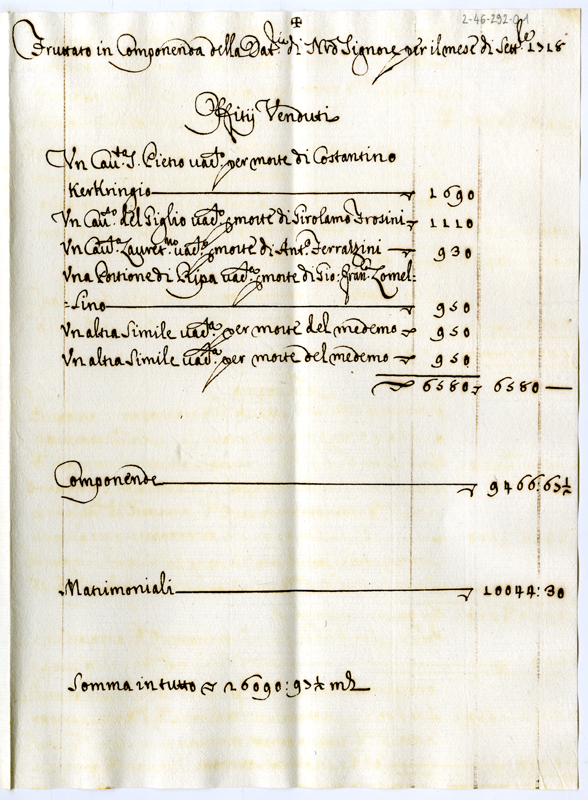 ✠
2-46-292-01
Fruttato in Componenda della Dat.ria di Nro Signore per il mese di Sett.e 1718
Offitij Venduti
Un Cau.to S. Pietro uac.to per morte di Costantino
Kerkringio 1690
Un Cau.to del Giglio uac.to p morte di Girolamo Frosini 1110
Un Cau.to Lauret.no uac.to p morte di Ant.o Ferrazzini 930
Una Portione di Ripa uac.ta p morte di Gio: Fran.co Zomel=
=lino 950
Un altra Simile uac.ta per morte del medemo 950
Un altra Simile uac.ta per morte del medemo 950
6580 6580
Componende 9466:63½
Matrimoniali 10044:30
Somma in tutto 26090:93½ mta